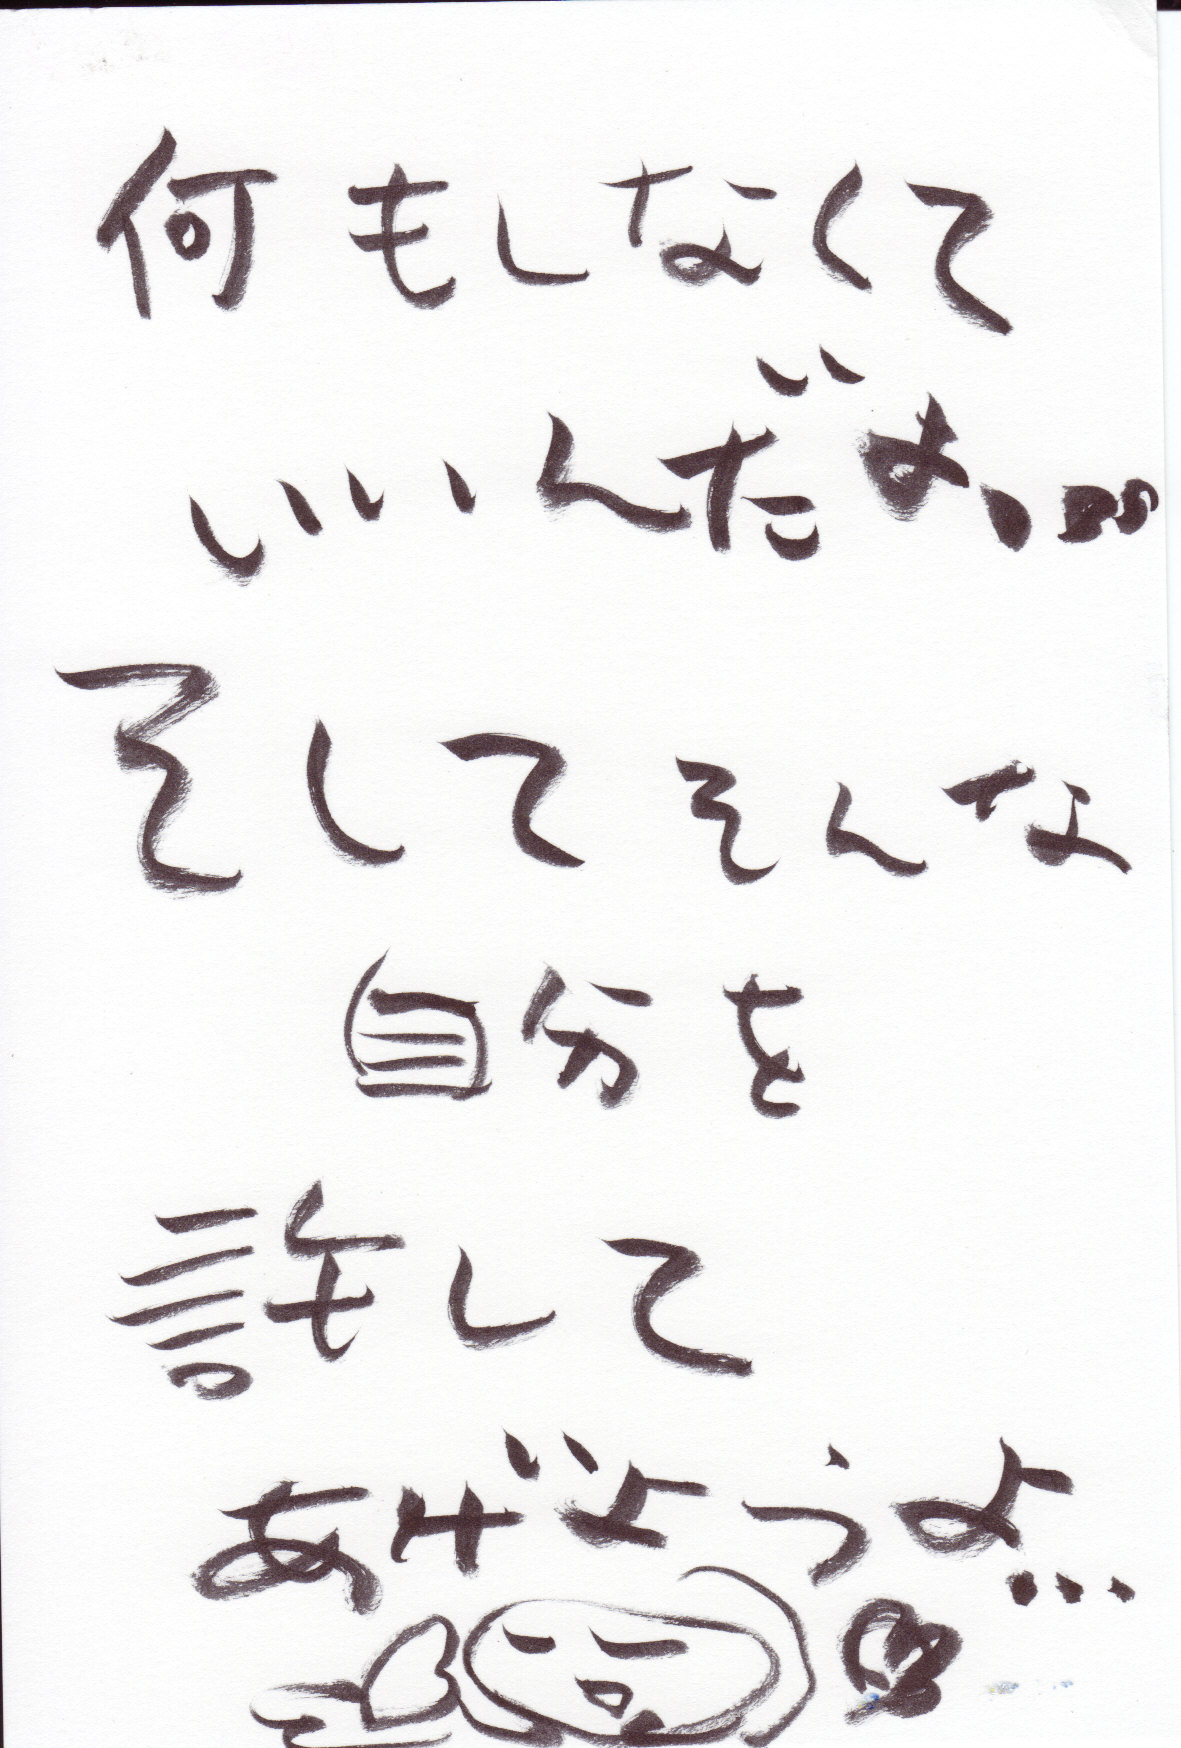 何もしなくて
いいんだよ...
そしてそんな
自分を
許して
あげようよ...